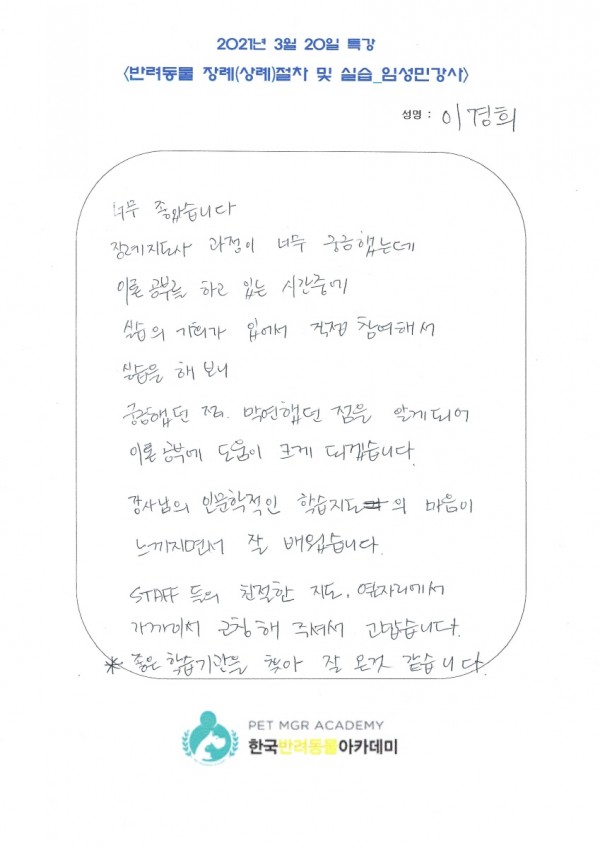 2021년 3월 20일 특강
<반려동물 장례(상례)절차 및 실습_임성민강사>
성명 : 이경희
너무 좋았습니다
장례지도사 과정이 너무 궁금했는데
이론 공부를 하고 있는 시간중에
실습의 기회가 있어서 직접 참여해서
실습을 해 보니
궁금했던 점. 막연했던 점을 알게되어
이론 공부에 도움이 크게 되겠습니다.
강사님의 인문학적인 학습지도의 마음이
느껴지면서 잘 배웠습니다.
STAFF 들의 친절한 지도, 옆자리에서
가까이서 코칭해 주셔서 고맙습니다.
* 좋은 학습기관을 찾아 잘 온것 같습니다.
PET MGR ACADEMY
한국반려동물아카데미